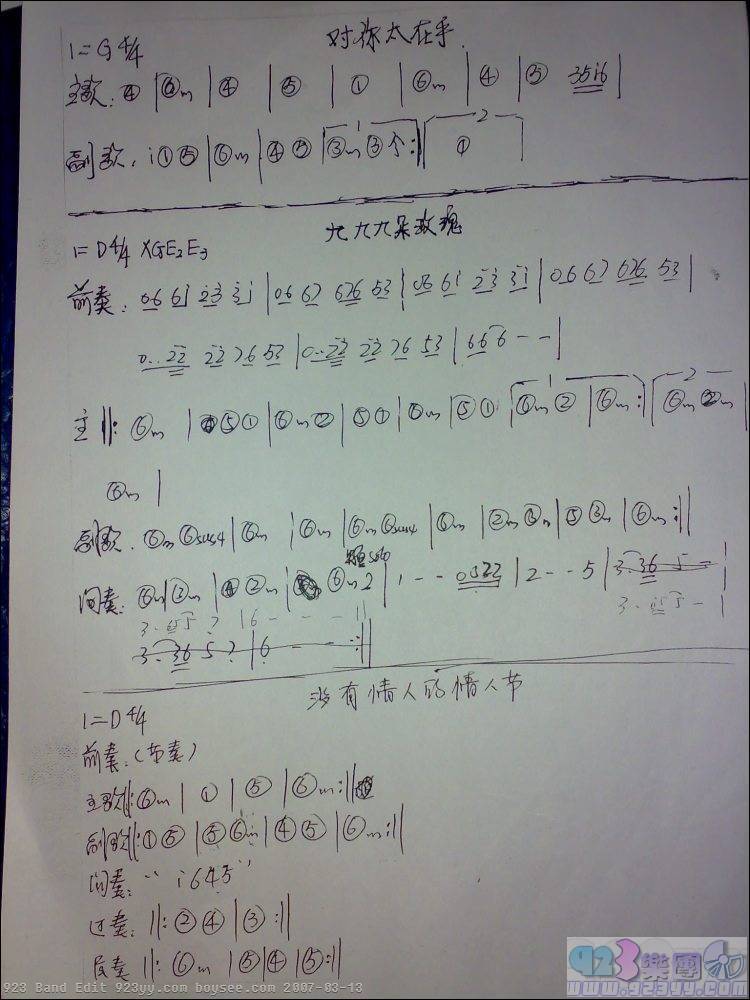 对你太在乎
1=G 4/4
主歌: ④ | ⑥m | ④ | ⑤ | ① | ⑥m | ④ | ⑤ 35i6 |
副歌. i ① ⑤ | ⑥m | ④ ⑤ | ③m ③ 个 :|| ①
1 2
九九九朵玫瑰
1=D 4/4 XGE2E3
前奏: 06 6i 23 3i | 06 67 676 53 | 06 6i 23 3i | 06 67 676 53 |
0.. 22 22 76 53 | 0.. 22 22 76 53 | 66 6 - - |
主 ||: ⑥m | ④ ⑤ ① | ⑥m ② | ⑤ ① | ⑥m | ⑤ ① | ⑥m ② | ⑥m :|| ⑥m ②m |
1 2
⑥m |
副歌. ⑥m ⑥sus4 | ⑥m | ⑥m | ⑥m ⑥sus4 | ⑥m | ②m ③m | ⑤ ③m | ⑥m :||
solo
间奏: ⑥m | ③m | ④ ②m | ⑥m 2 | 1 - - 0322 | 2 - - 5 | 3. 36 5 - |
3. 65 5 - |
3. 65 5 ? | 6 - - - ||
3. 36 5 ? | 6 - - - :||
没有情人的情人节
1=D 4/4
前奏: (节奏)
主歌 ||: ⑥m | ① | ⑤ | ⑥m :||
副歌 ||: ① ⑤ | ⑤ ⑥m | ④ ⑤ | ⑥m :||
间奏: “i645”
过奏: ||: ② ④ | ③ :||
尾奏 ||: ⑥m | ⑤ | ④ | ⑤ :||
923樂團
www.923yy.com
923 Band Edit 923yy.com boysee.com 2007-03-13